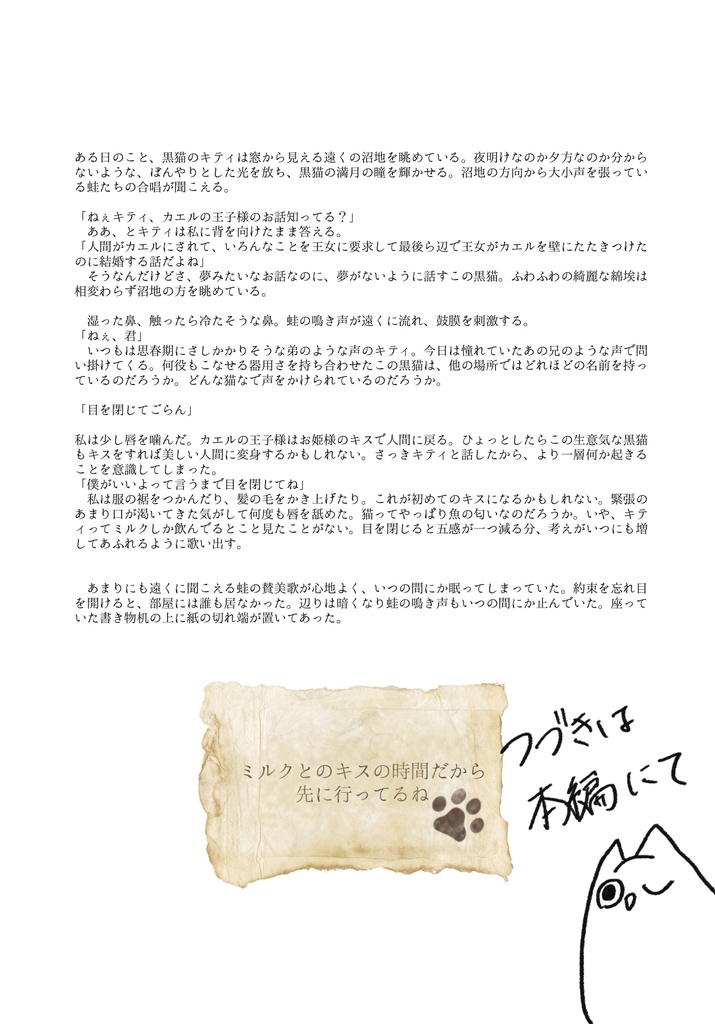 ある日のこと、黒猫のキティは窓から見える遠くの沼地を眺めている。夜明けなのか夕方なのか分から
ないような、ぼんやりとした光を放ち、黒猫の満月の瞳を輝かせる。沼地の方向から大小声を張ってい
る蛙たちの合唱が聞こえる。
「ねぇキティ、カエルの王子様のお話知ってる？」
　ああ、とキティは私に背を向けたまま答える。
「人間がカエルにされて、いろんなことを王女に要求して最後ら辺で王女がカエルを壁にたたきつけた
のに結婚する話だよね」
　そうなんだけどさ、夢みたいなお話なのに、夢がないように話すこの黒猫。ふわふわの綺麗な綿埃は
相変わらず沼地の方を眺めている。
　湿った鼻、触ったら冷たそうな鼻。蛙の鳴き声が遠くに流れ、鼓膜を刺激する。
「ねぇ、君」
　いつもは思春期にさしかかりそうな弟のような声のキティ。今日は憧れていたあの兄のような声で問
い掛けてくる。何役もこなせる器用さを持ち合わせたこの黒猫は、他の場所ではどれほどの名前を持っ
ているのだろうか。どんな猫なで声をかけられているのだろうか。
「目を閉じてごらん」
私は少し唇を噛んだ。カエルの王子様はお姫様のキスで人間に戻る。ひょっとしたらこの生意気な黒猫
もキスをすれば美しい人間に変身するかもしれない。さっきキティと話したから、より一層何か起きる
ことを意識してしまった。
「僕がいいよって言うまで目を閉じてね」
　私は服の裾をつかんだり、髪の毛をかき上げたり。これが初めてのキスになるかもしれない。緊張の
あまり口が渇いてきた気がして何度も唇を舐めた。猫ってやっぱり魚の匂いなのだろうか。いや、キテ
ィってミルクしか飲んでるとこと見たことがない。目を閉じると五感が一つ減る分、考えがいつにも増
してあふれるように歌い出す。
　あまりにも遠くに聞こえる蛙の賛美歌が心地よく、いつの間にか眠ってしまっていた。約束を忘れ目
を開けると、部屋には誰も居なかった。辺りは暗くなり蛙の鳴き声もいつの間にか止んでいた。座って
いた書き物机の上に紙の切れ端が置いてあった。
ミルクとのキスの時間だから
先に行ってるね
つづきは
本編にて